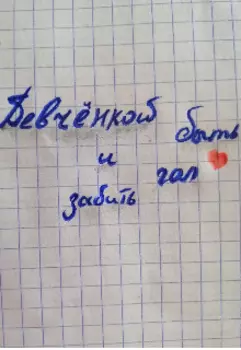 Девчёнкой быть
и
забить гол